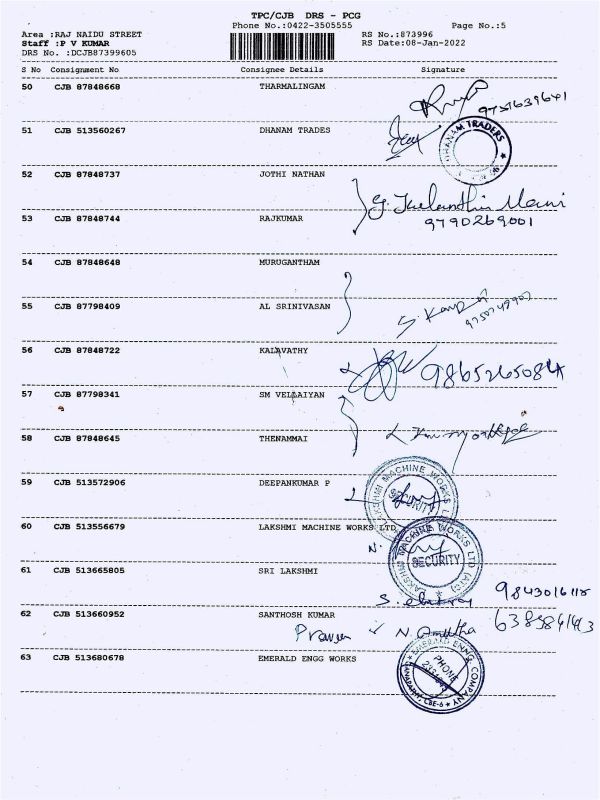 TPC/CJB DRS - PCG
Phone No.:0422-3505555
Page No.:5
Area :RAJ NAIDU STREET
Staff :P V KUMAR
DRS No. :DCJB87399605
RS No.:873996
RS Date:08-Jan-2022
S No Consignment No Consignee Details Signature
50 CJB 87848668 THARMALINGAM
9751639641
51 CJB 513560267 DHANAM TRADES
DHANAM TRADERS
52 CJB 87848737 JOTHI NATHAN
53 CJB 87848744 RAJKUMAR
9790269001
54 CJB 87848648 MURUGANTHAM
55 CJB 87798409 AL SRINIVASAN
56 CJB 87848722 KALAVATHY
57 CJB 87798341 SM VELLAIYAN
58 CJB 87848645 THENAMMAI
59 CJB 513572906 DEEPANKUMAR P
LAKSHMI MACHINE WORKS
SECURITY
60 CJB 513556679 LAKSHMI MACHINE WORKS LTD
LAKSHMI MACHINE WORKS LTD
SECURITY
61 CJB 513665805 SRI LAKSHMI
62 CJB 513660952 SANTHOSH KUMAR
Praveen
63 CJB 513680678 EMERALD ENGG WORKS
EMERALD ENGG COMPANY
PHONE
GANAPATHY, CBE-6